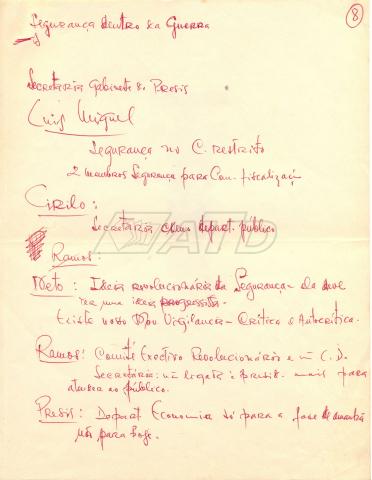 8
Segurança dentro da Guerra
Secretaria Gabinete do Presis
Luis Miguel
Segurança no C. restrito
2 membros Segurança para Com. fiscalizaçã
Cirilo:
Secretarios chefes depart. público
ATD
Ramos:
Neto: Ideia revolucionária da Segurança – ela deve
ser uma ideia progressista.
Existe nosso Vigilancia – Crítica e Autocrítica.
Ramos: Comité Executivo Revolucionário e C. D.
Secretaria: ligada à Presid. mais para
atender ao público.
Presis: Depart Economia só para a fase de amanhã
não para hoje.